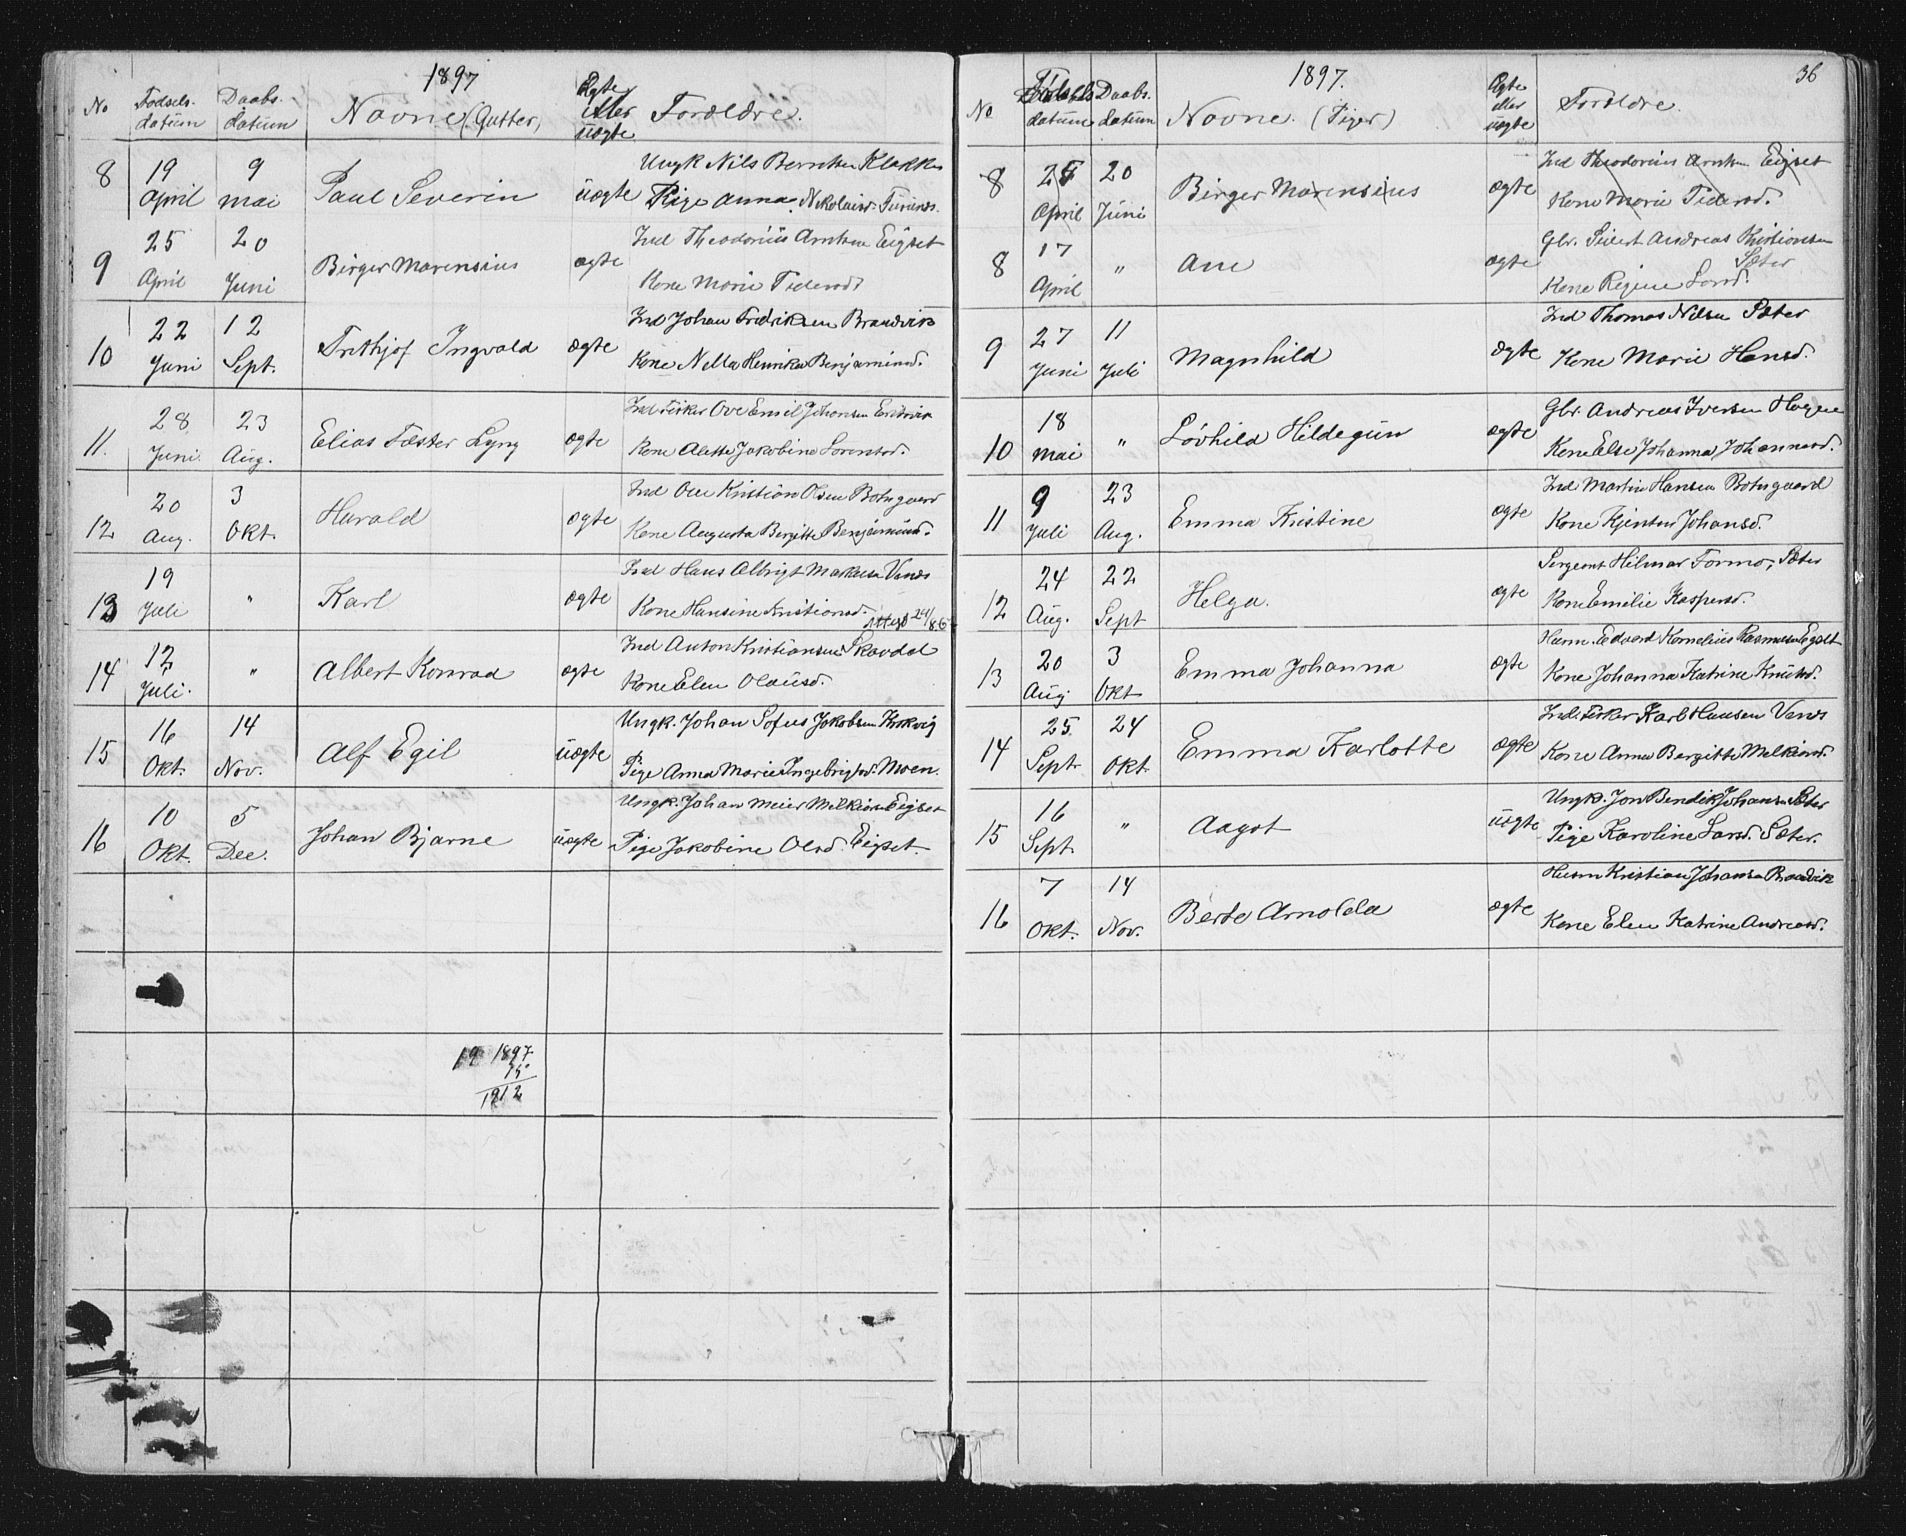 1897
No
Fødsels-
datum
Daabs-
datum
Navne (Gutter)
Ægte
eller
uægte
Forældre.
8
19
April
9
mai
Paul Severin
uægte
Ungk Nils Berntsen Klakken
Pige Anna Nikolaisd.
9
25
April
20
Juni
Birger Marensius
ægte
Ind Theodorius Arntsen Eigset
Kone Marie Federsd.
10
22
Juni
12
Sept.
Frithjof Ingvald
ægte
Ind Johan Fredriksen Brandvik
Kone Nella Henrikka Benjaminsd.
11.
28
Juni.
23
Aug.
Elias Fæster Lyng
ægte
Ind Fisker Ove Emil Johansen
Kone Alette Jakobine Lorentsd.
12
20
Aug.
3
Okt.
Harald
ægte
Ind Ole Kristian Olsen Botngaard
Kone Augusta Bergitte Benjaminsd.
13
19
Juli
"
Karl
ægte
Ind Hans Albrigt Markusen
Kone Hansine Kristiansd.
14
12
Juli.
"
Albert Konrad
ægte
Ind Anton Kristiansen Skavdal
Kone Elen Olausd.
15
16
Okt.
14
Nov.
Alf Egil
uægte
Ungk. Johan Sofus Jakobsen
Pige Anna Marie Ingebrigtsd. Moen.
16
10
Okt.
5
Dec.
Johan Bjarne
uægte
Ungk. Johan Meier Melkiorsen Eigset
Pige Jakobine Olsd. Eigset.
19 1897
15
1912
36
1897.
No
Fødsels
datum
Daabs-
datum
Navne. (Piger)
Ægte
eller
uægte
Forældre.
8
25
April
20
Juni
Birger Marensius
ægte
Ind Theodorius Arntsen Eigset
Kone Marie Federsd.
8
17
April
"
Ane
ægte
Gbr. Sivert Andreas Kristiansen
Sæter
Kone Regine Larsd.
9
27
Juni
11
Juli
Magnhild
ægte
Ind Thomas Nilsen Sæter
Kone Marie Hansd.
10
18
mai
"
Lovhild Hildegun
ægte
Gbr. Andreas Iversen Hogne
Kone Else Johanna Johannesd.
11
9
Juli
23
Aug.
Emma Kristine
ægte
Ind Martin Hansen Botngaard
Kone Johansd.
12
24
Aug.
22
Sept
Helga.
ægte
Sergeant Hilmar Formo, Sæter
Kone Emilie Kaspersd.
13
20
Aug
3
Okt
Emma Johanna
ægte
Husm. Edvard Kornelius Rasmussen Eigset
Kone Johanna Katrine Knutsd.
14
25.
Sept.
24
Okt.
Emma Karlotte
ægte
Ind. Fisker Karl Hansen
Kone Anna Bergitte Melkiorsd.
15
16
Sept.
"
Aagot
uægte
Ungk. Jon Bendik Johansen Sæter
Pige Karoline Larsd. Sæter.
16
7
Okt.
14
Nov.
Berte Arnolda
ægte
Husm Kristian Johansen Brandvik
Kone Elen Katrine Andreasd.